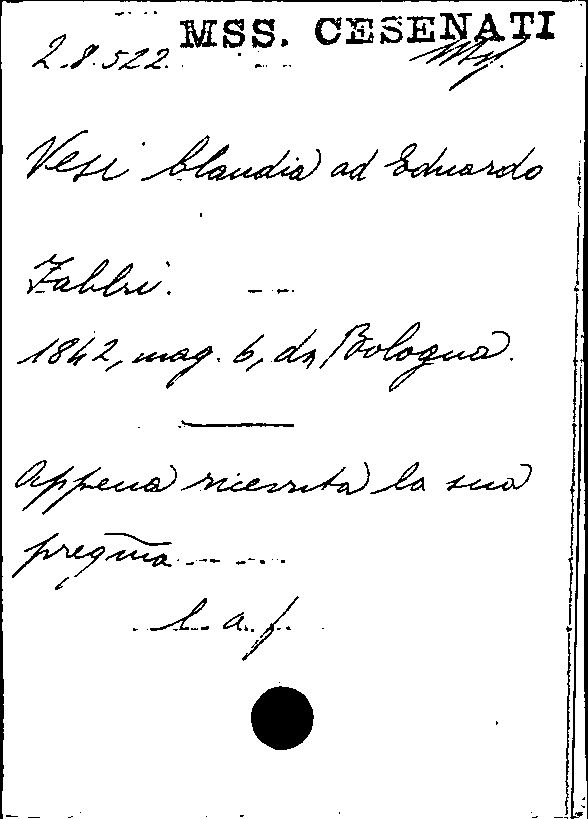 MSS. CESENATI
28.522.
Vesi Claudia ad Eduardo
Fabbri.
1842, mag. 6, da Bologna.
Appena ricevuta la sua
preg̃ma
l. a. f.